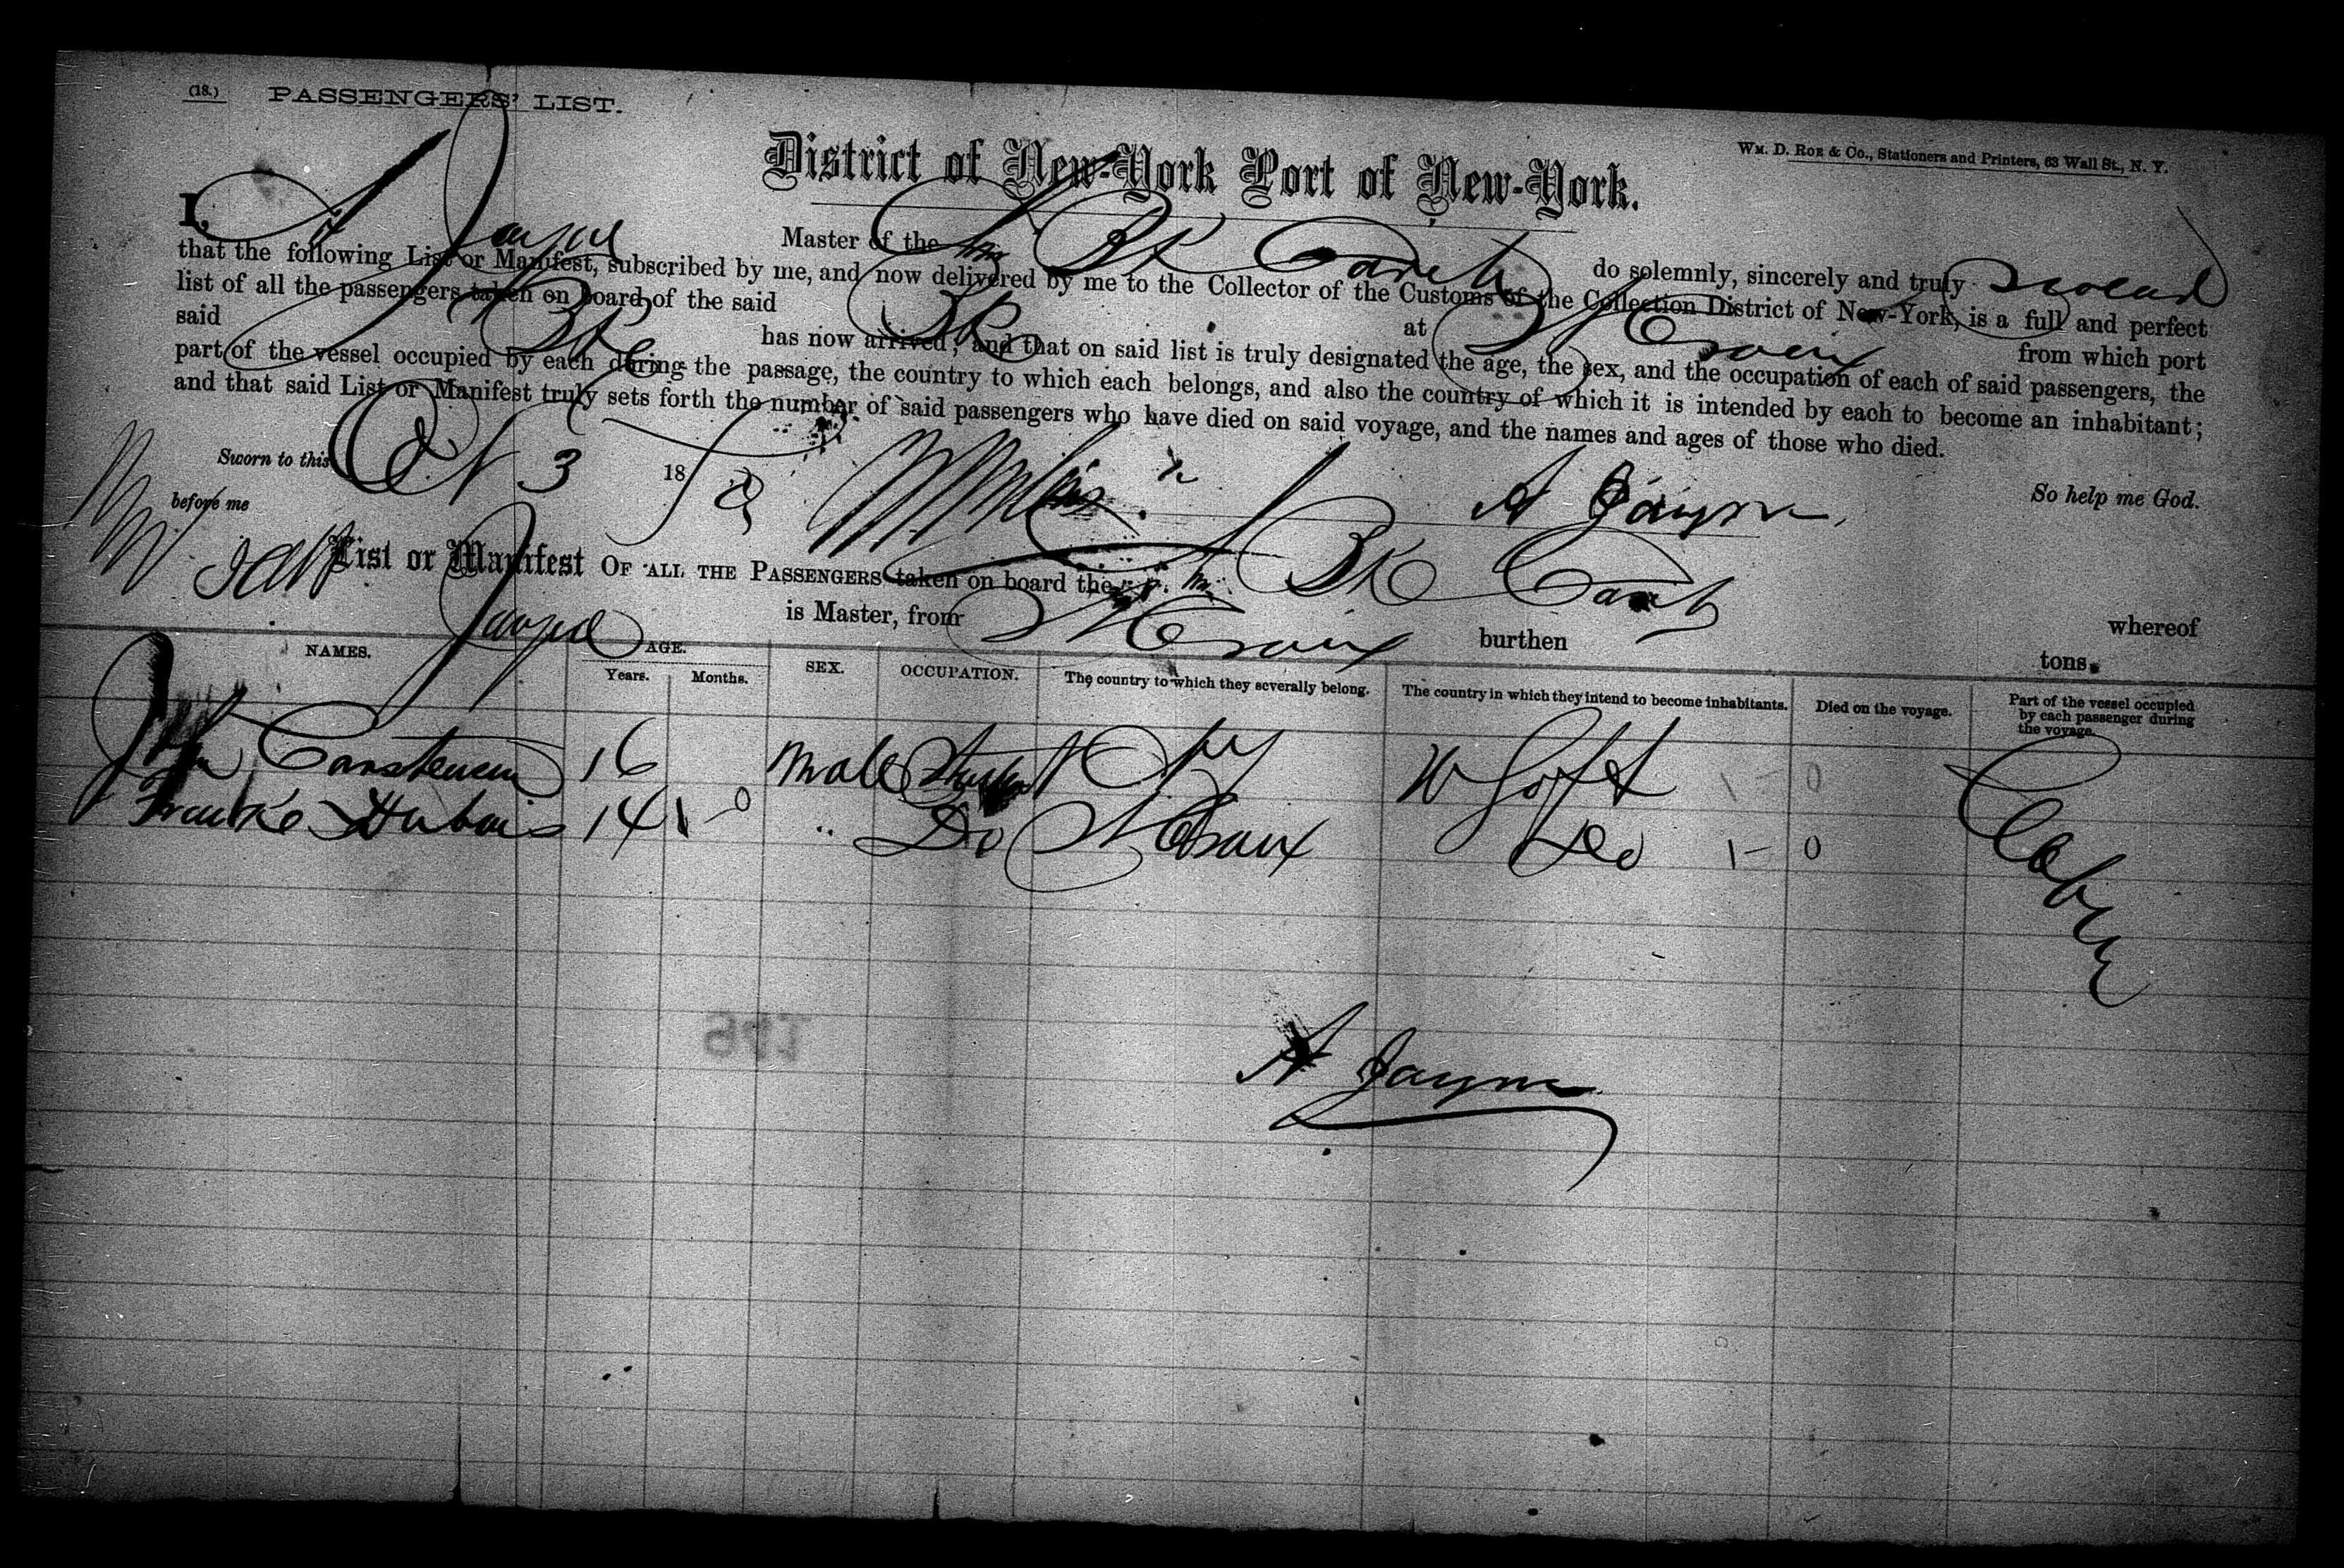 (18.) PASSENGERS' LIST.
WM. D. ROE & Co., Stationers and Printers, 63 Wall St., N. Y.
District of New-York Port of New-York.
I, A Jayne Master of the do solemnly, sincerely and truly swear
that the following List or Manifest, subscribed by me, and now delivered by me to the Collector of the Customs of the Collection District of New-York, is a full and perfect
list of all the passengers taken on board of the said at St Croix from which port
said Bk has now arrived; and that on said list is truly designated the age, the sex, and the occupation of each of said passengers, the
part of the vessel occupied by each during the passage, the country to which each belongs, and also the country of which it is intended by each to become an inhabitant;
and that said List or Manifest truly sets forth the number of said passengers who have died on said voyage, and the names and ages of those who died.
Sworn to this 3 18 So help me God.
before me A Jayne
List or Manifest OF ALL THE PASSENGERS taken on board the Bk whereof
Jayne is Master, from St Croix burthen tons.
NAMES. AGE. Years. Months. SEX. OCCUPATION. The country to which they severally belong. The country in which they intend to become inhabitants. Died on the voyage. Part of the vessel occupied by each passenger during the voyage.
John Carstensen 16 Male Student 1 - 0
14 1 - 0 " Do St Croix Do 1 - 0
Cabin
A Jayne